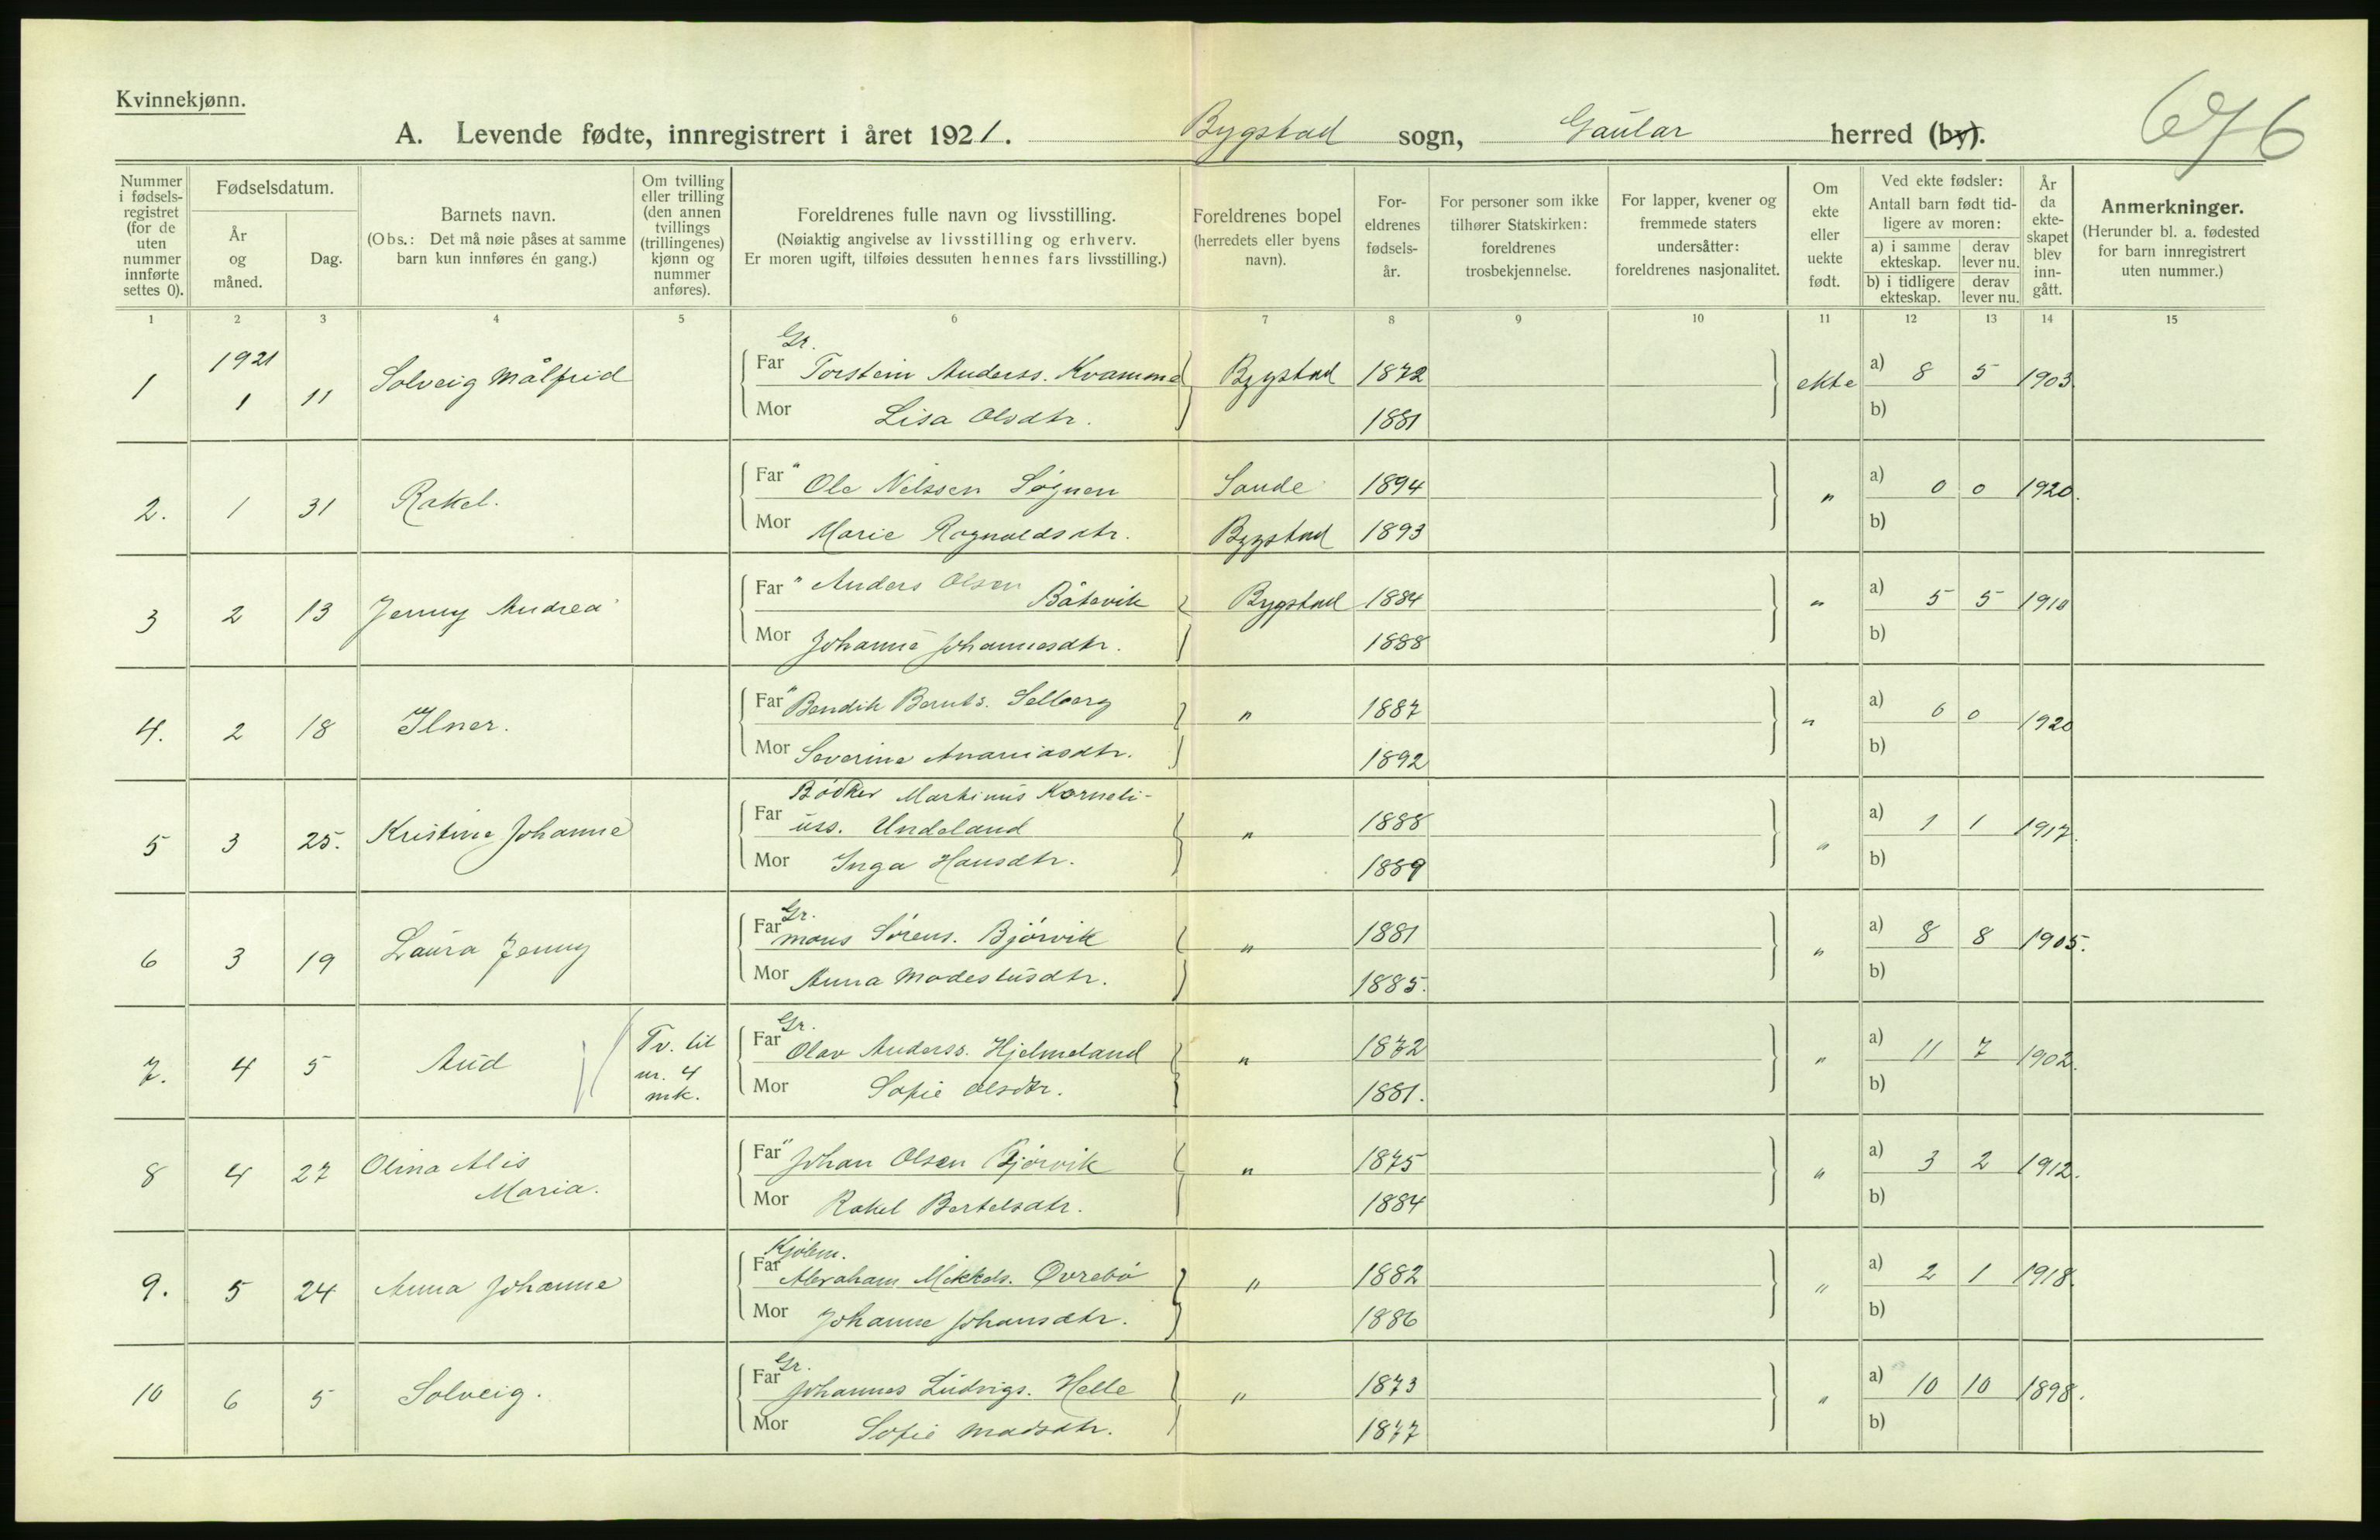 Kvinnekjønn.
A. Levende fødte, innregistrert i året 1921. Bygstad sogn, Gaular herred (by).
676
Nummer i fødsels-registret (for de uten nummer innførte settes 0).
Fødselsdatum.
År og måned.
Dag.
Barnets navn.
(Obs.: Det må nøie påses at samme barn kun innføres én gang.)
Om tvilling eller trilling (den annen tvillings (trillingenes) kjønn og nummer anføres).
Foreldrenes fulle navn og livsstilling.
(Nøiaktig angivelse av livsstilling og erhverv.
Er moren ugift, tilføies dessuten hennes fars livsstilling.)
Foreldrenes bopel (herredets eller byens navn).
For-eldrenes fødsels-år.
For personer som ikke tilhører Statskirken: foreldrenes trosbekjennelse.
For lapper, kvener og fremmede staters undersåtter: foreldrenes nasjonalitet.
Om ekte eller uekte født.
Ved ekte fødsler: Antall barn født tid-ligere av moren:
a) i samme ekteskap. derav lever nu.
b) i tidligere ekteskap. derav lever nu.
År da ekte-skapet blev inn-gått.
Anmerkninger.
(Herunder bl. a. fødested for barn innregistrert uten nummer.)
1 2 3 4 5 6 7 8 9 10 11 12 13 14 15
1921
Gr.
1 1 11 Solveig Målfrid Far Torstein Anderss. Kvamme Bygstad 1872 ekte a) 8 5 1903
Mor Lisa Olsdtr. 1881 b)
2. 1 31 Rakel. Far " Ole Nilssen Søgnen Sande 1894 " a) 0 0 1920.
Mor Marie Rognaldsdtr. Bygstad 1893 b)
3 2 13 Jenny Andrea Far " Anders Olsen Båtevik Bygstad 1884 " a) 5 5 1910
Mor Johanne Johannesdtr. 1888 b)
4. 2 18 Ilner. Far " Bendik Bernts. Selberg " 1887 " a) 0 0 1920
Mor Severine Ananiasdtr. 1892 b)
Bødker Martinus Korneli-
5 3 25. Kristine Johanne Far uss. Undeland " 1888 " a) 1 1 1917.
Mor Inga Hansdtr. 1889 b)
Gr.
6 3 19 Laura Jenny Far Mons Sørens. Bjørvik " 1881 " a) 8 8 1905.
Mor Anna Modestusdtr. 1885. b)
Gr.
7. 4 5 Aud Tv. til nr. 4 mk. Far Olav Anderss. Hjelmeland " 1872 " a) 11 7 1902.
Mor Sofie Olsdtr. 1881. b)
8 4 27 Olina Alis Maria. Far " Johan Olsen Bjørvik " 1875 " a) 3 2 1912.
Mor Rakel Bertelsdtr. 1884 b)
Kjøbm.
9. 5 24 Anna Johanne Far Abraham Mikkels. Øvrebø " 1882 " a) 2 1 1918.
Mor Johanne Johansdtr. 1886 b)
Gr.
10 6 5 Solveig. Far Johannes Ludvigs. Helle " 1873 " a) 10 10 1898.
Mor Sofie Madsdtr. 1877 b)